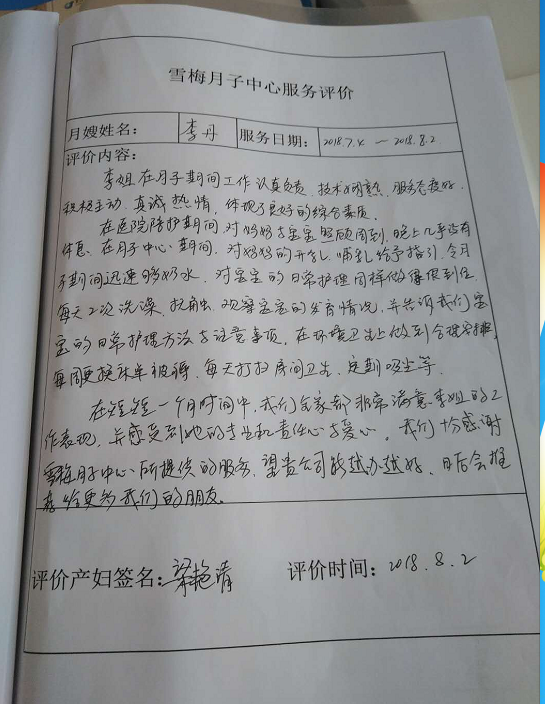 雪梅月子中心服务评价
月嫂姓名： 李丹 服务日期： 2018.7.4 — 2018.8.2
评价内容：
李姐在月子期间工作认真负责，技术娴熟，服务态度好，
积极主动，真诚热情，体现了良好的综合素质。
在医院陪护期间，对妈妈与宝宝照顾周到，晚上几乎没有
休息，在月子中心期间，对妈妈的开乳、哺乳给予指引，令月
子期间迅速够奶水，对宝宝的日常护理同样做得很到位，
每天2次洗澡、抚触，观察宝宝的发育情况，并告诉我们宝
宝的日常护理方法与注意事项，在环境卫生上做到合理安排，
每周更换床单被褥，每天打扫房间卫生，定期吸尘等。
在短短一个月时间中，我们全家都非常满意李姐的工
作表现，并感受到她的专业和责任心与爱心，我们十分感谢
雪梅月子中心所提供的服务，望贵公司能越办越好，日后会推
荐给更多我们的朋友。
评价产妇签名：梁艳清 评价时间：2018.8.2